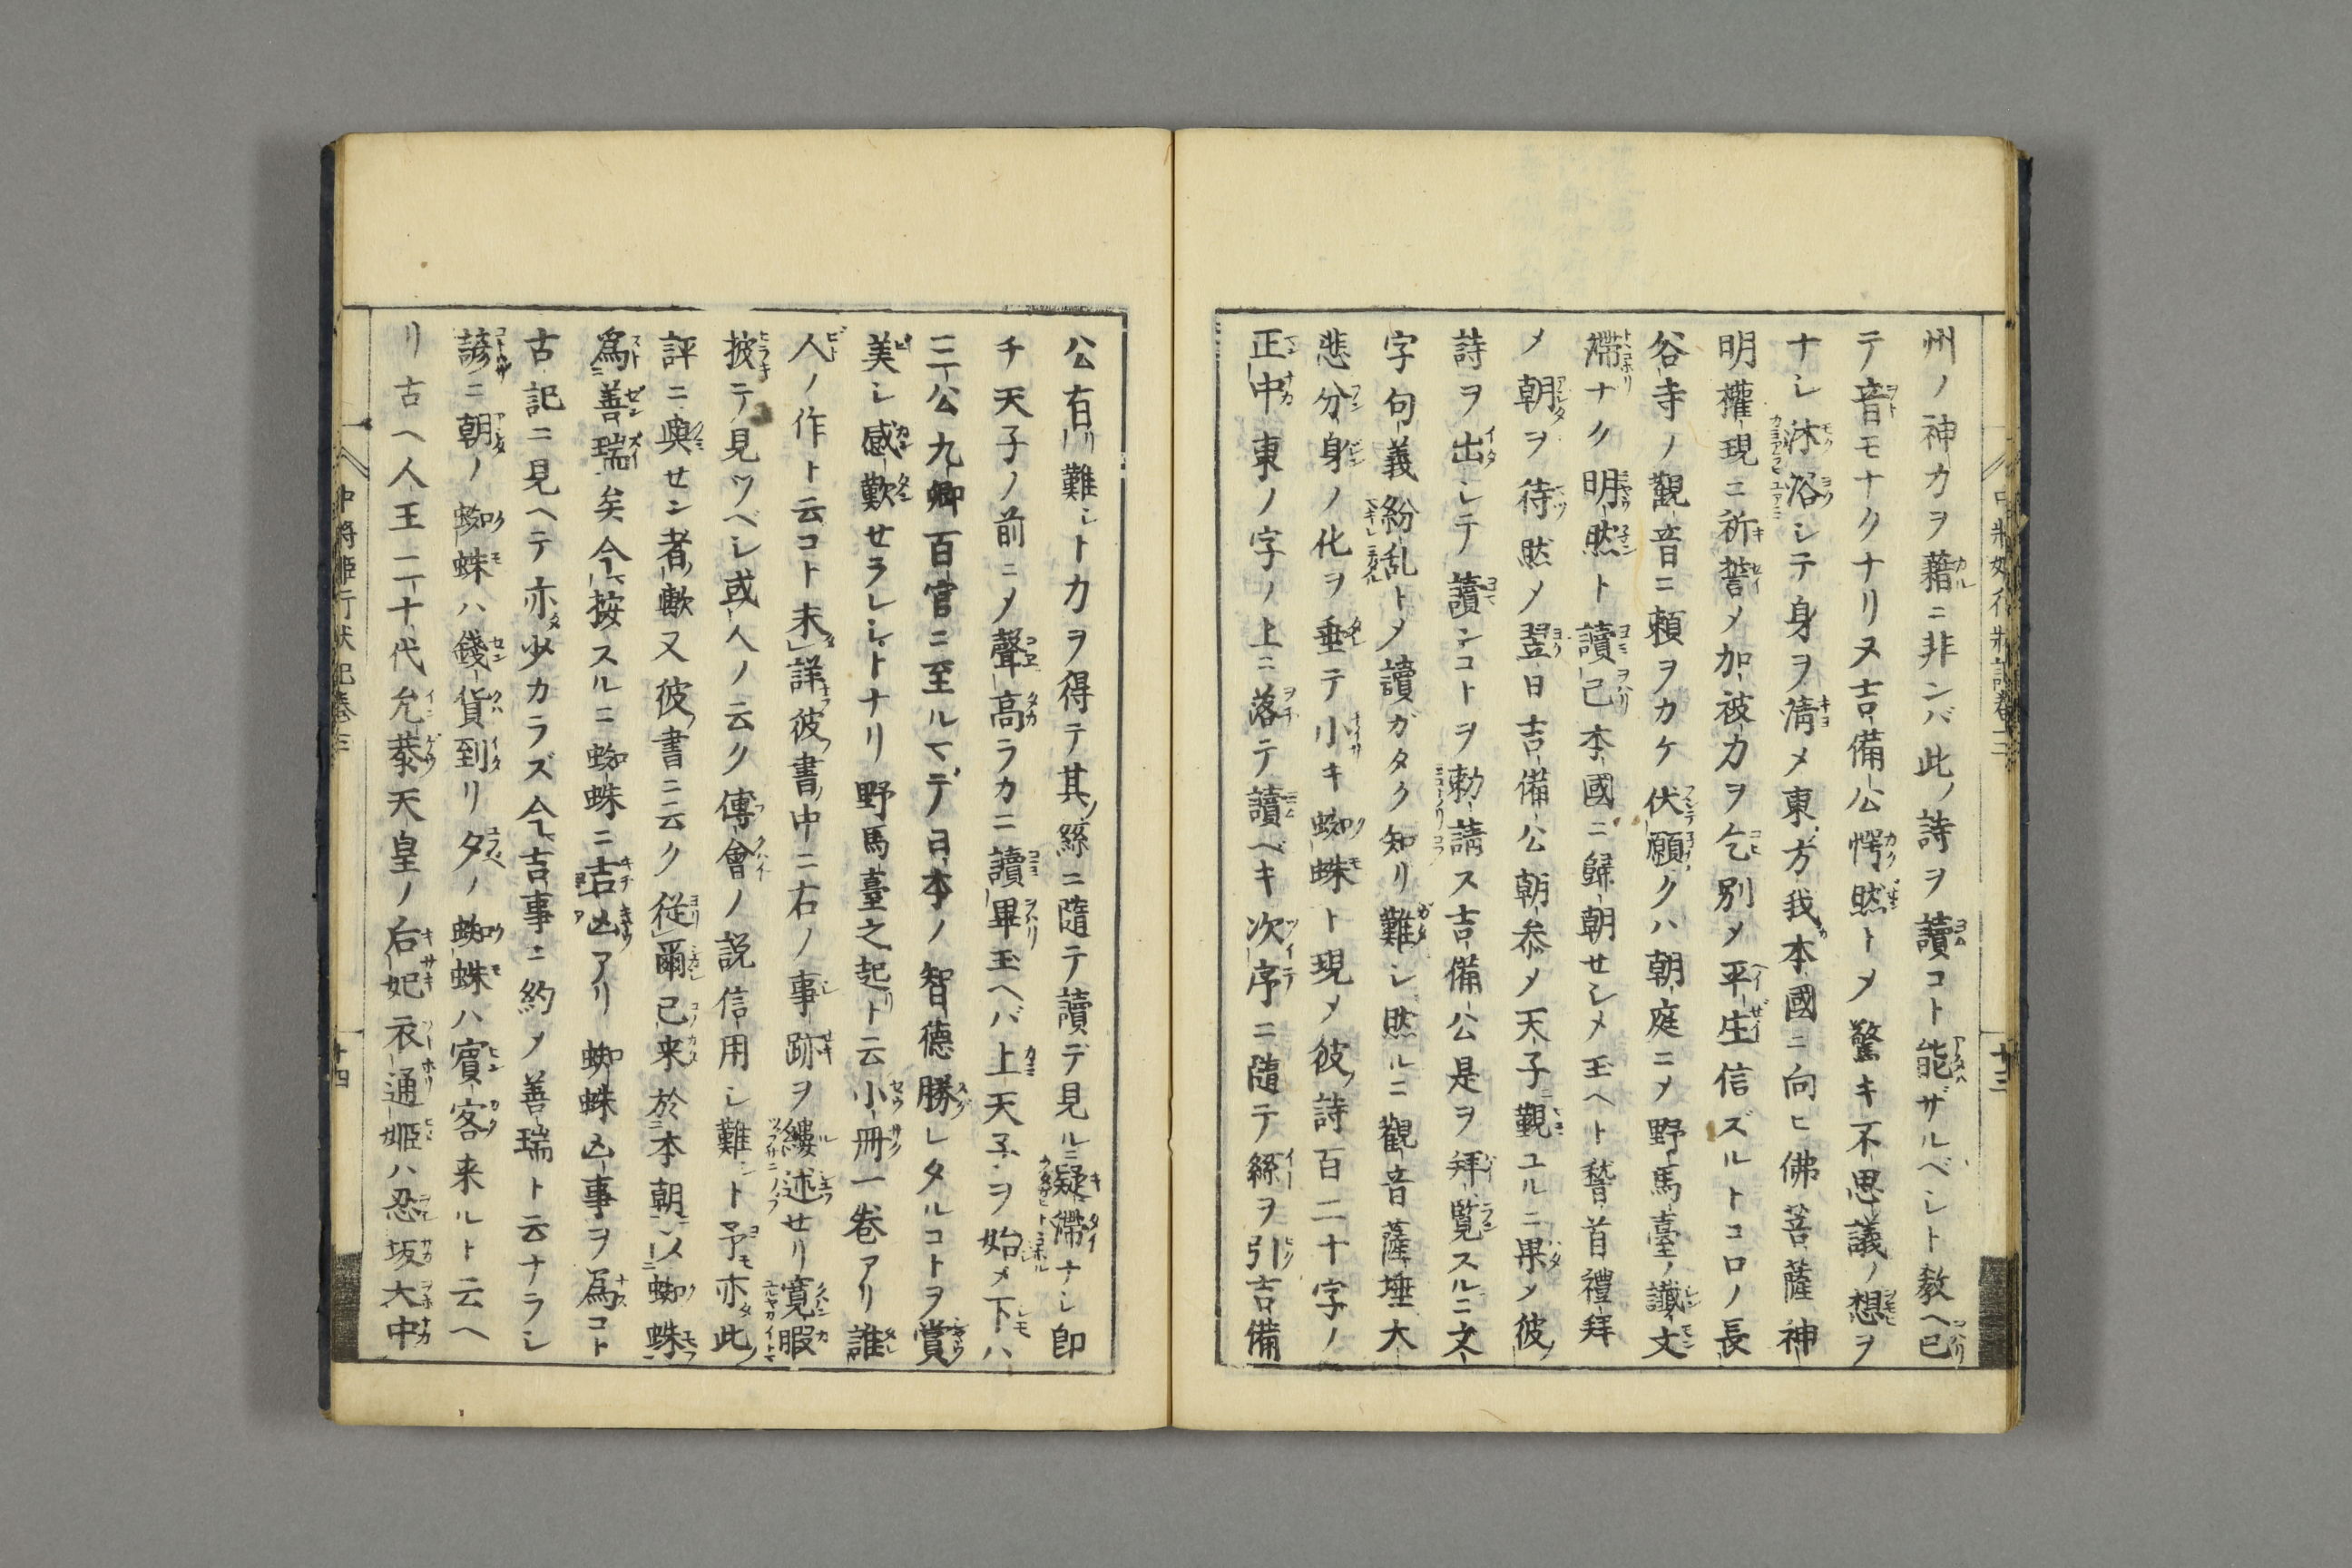 州ノ神力ヲ藉ニ非ンバ此ノ詩ヲ讀コト能ザルベシト教ヘ已
テ音モナクナリヌ吉備公愕然トメ驚キ不思議ノ想ヲ
ナシ沐浴シテ身ヲ清メ東方我本國ニ向ヒ佛菩薩神
明權現ニ祈誓メ加被力ヲ乞別メ平生信ズルトコロノ長
谷寺ノ觀音ニ頼ヲカケ伏願クハ朝庭ニメ野馬臺ノ讖文
滯ナク明然ト讀已本國ニ歸朝セシメ玉ヘト誓首禮拜
メ朝ヲ待然メ翌日吉備公朝参メ天子ニ覲ユルニ果メ彼ノ
詩ヲ出シテ讀ンコトヲ勅請ス吉備公是ヲ拜覧スルニ文
字句義紛乱トメ讀ガタク知リ難シ然ルニ觀音薩埵大
悲分身ノ化ヲ垂テ小キ蜘蛛ト現メ彼ノ詩百二十字ノ
正中東ノ字ノ上ニ落テ讀ベキ次序ニ隨テ絲ヲ引吉備
中将姫行状記巻三
十三
公有リ難シト力ヲ得テ其ノ絲ニ隨テ讀デ見ルニ疑滯ナシ即
チ天子ノ前ニメ聲高ラカニ讀畢玉ヘバ上天子ヲ始メ下ハ
三公九卿百官ニ至ルマデ日本ノ智德勝レタルコトヲ賞
美シ感歎セラレシトナリ野馬臺之起リト云小冊一巻アリ誰
人ノ作ト云コト未詳彼ノ書ノ中ニ右ノ事跡ヲ縷述セリ寛暇
披テ見ツベシ或人ノ云ク傳會ノ説信用シ難シト予モ亦此ノ
評ニ與セン者歟又彼ノ書ニ云ク從爾已来於本朝ニ以蜘蛛
爲善瑞矣今按スルニ蜘蛛ニ吉凶アリ蜘蛛凶事ヲ爲コト
古記ニ見ヘテ亦少カラズ今吉事ニ約メ善瑞ト云ナラシ
諺ニ朝ノ蜘蛛ハ錢貨到リ夕ノ蜘蛛ハ賓客来ルト云ヘ
リ古ヘ人王二十代允恭天皇ノ后妃衣通姫ハ忍坂大中
中将姫行状記巻三
十四